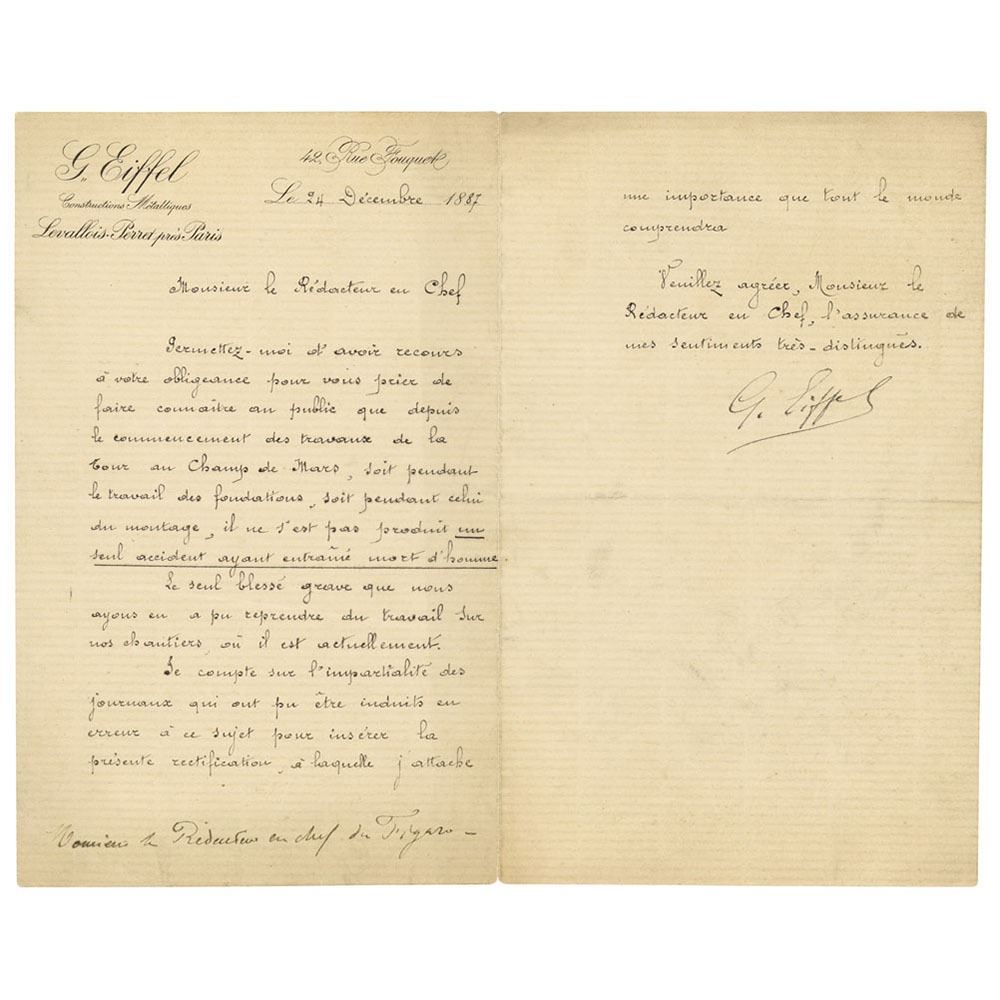 G. Eiffel
Constructions Métalliques
Levallois-Perret près Paris
42, Rue Fouquet
Le 24 Décembre 1887
Monsieur le Rédacteur en Chef
Permettez-moi d'avoir recours
à votre obligeance pour vous prier de
faire connaître au public que depuis
le commencement des travaux de la
tour au Champ de Mars, soit pendant
le travail des fondations, soit pendant celui
du montage, il ne s'est pas produit un
seul accident ayant entraîné mort d'homme.
Le seul blessé grave que nous
ayons eu a pu reprendre du travail sur
nos chantiers, où il est actuellement.
Je compte sur l'impartialité des
journaux qui ont pu être induits en
erreur à ce sujet pour insérer la
présente rectification, à laquelle j'attache
Monsieur le Rédacteur en chef du Figaro -
une importance que tout le monde
comprendra
Veuillez agréer, Monsieur le
Rédacteur en Chef, l'assurance de
mes sentiments très-distingués.
G. Eiffel